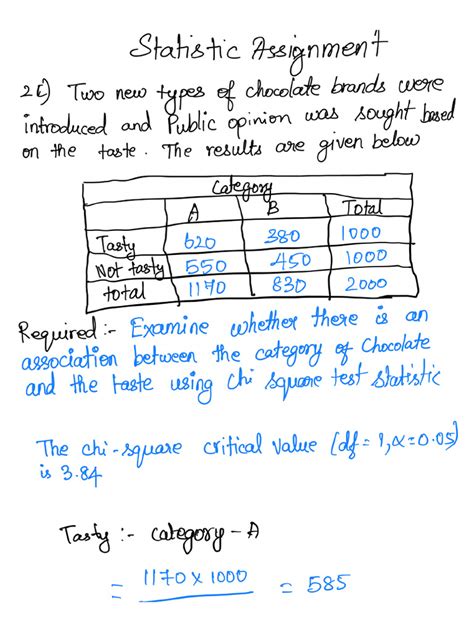 Statistic Assignment
2 i) Two new types of chocolate brands were
introduced and Public opinion was sought based
on the taste. The results are given below
Category
A B Total
Tasty 620 380 1000
Not tasty 550 450 1000
total 1170 830 2000
Required :- Examine whether there is an
association between the category of Chocolate
and the taste using Chi square test statistic
The chi-square critical value (df = 1, α=0.05)
is 3.84
Tasty :- category - A
= 1170 x 1000 = 585